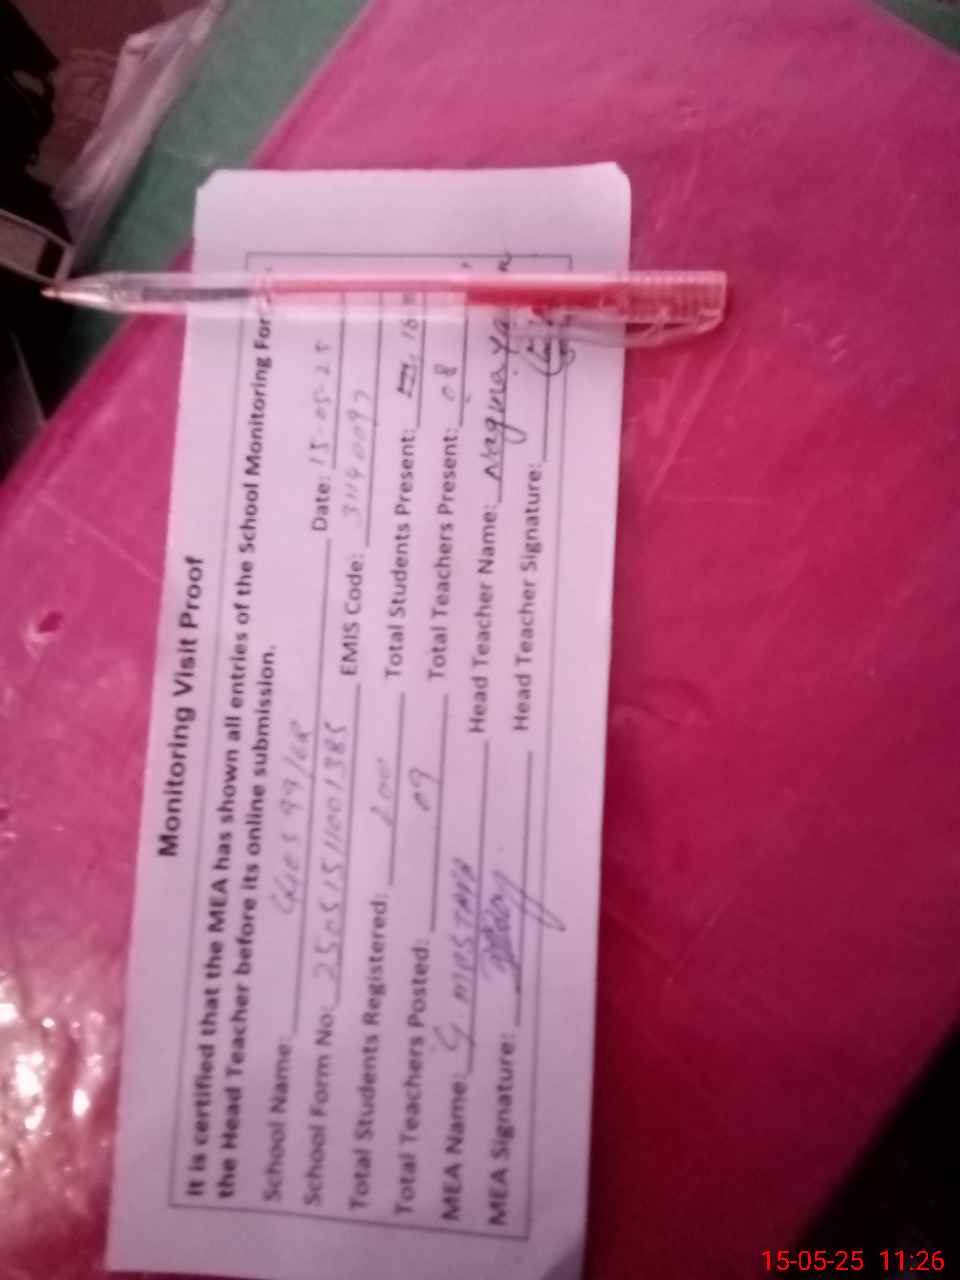 Monitoring Visit Proof
It is certified that the MEA has shown all entries of the School Monitoring For
the Head Teacher before its online submission.
School Name: Date: 15-05-25
School Form No: 25051511001385 EMIS Code: 31140097
Total Students Registered: 200 Total Students Present:
Total Teachers Posted: 09 Total Teachers Present: 08
MEA Name: G. MUSTAFA Head Teacher Name: Nagina
MEA Signature: Head Teacher Signature:
15-05-25 11:26